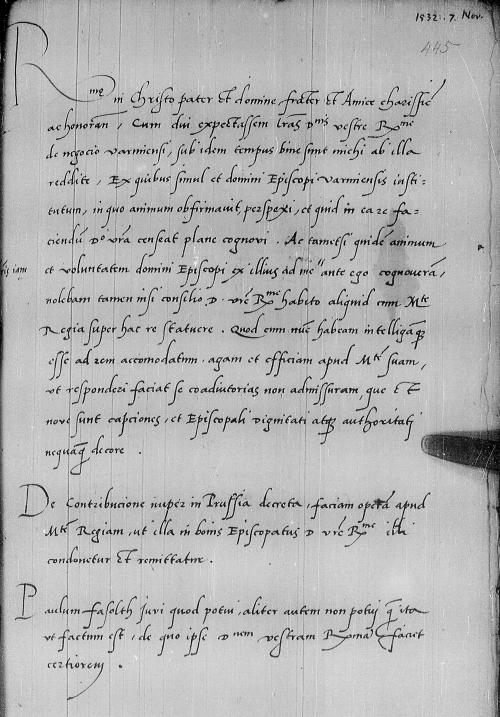 1532. 7. Nov.
445
Rme in Christo pater Et domine, frater et Amice charissie
ac honoran, Cum diu expectassem lras Dnis vestre Rxme
de negocio varmiensi, sub idem tempus bine sunt michi ab illa
reddite, Ex quibus simul et domini Episcopi varmiensis insti-
tutum, in quo animum obfirmavit, perspexi, et quid in ea re fa-
ciendu Do vra censeat plane cognovi. Ac tametsi quide animum
et voluntatem domini Episcopi ex illius ad me ante ego cognovera,
lris iam
nolebam tamen nisi consilio D. vre Rxme habito aliquid cum Mte
Regia super hac re statuere. Quod cum nuc habeam intelligaque
esse ad rem accomodatum, agam et efficiam apud Mte suam,
ut responderi faciat se coadiutorias non admissuram, que Et
nove sunt capciones, et Episcopali dignitati atque authoritati
nequaque decore.
De Contribucione nuper in Prussia decreta, faciam opera apud
Mte Regiam, ut illa in bonis Episcopatus D vre Rxme illi
condonetur Et remittatur.
Paulum fasolth iuvi quod potui, aliter autem non potui que ita
ut factum est, de quo ipse Dnem vestram Rxma faciet
certiorem.